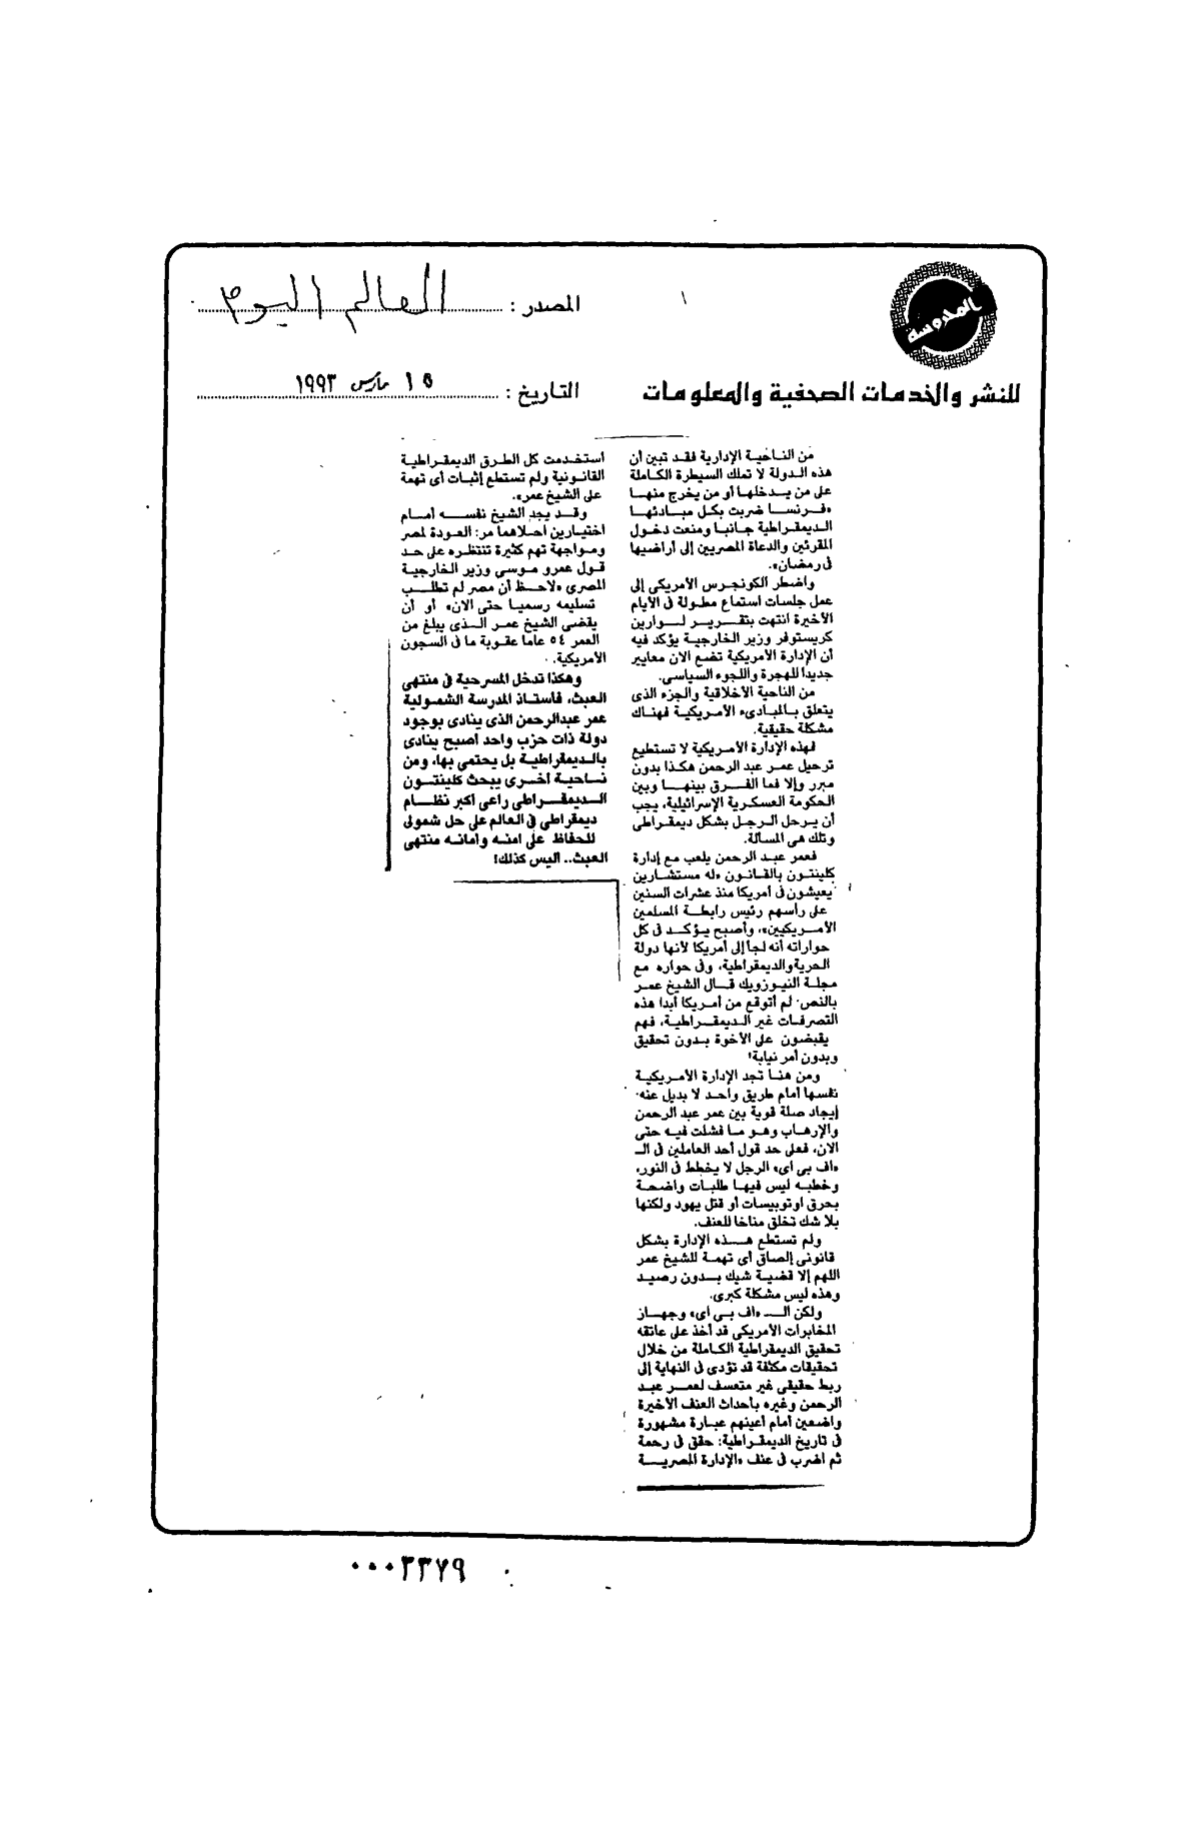 المحروسة
للنشر والخدمات الصحفية والمعلومات
المصدر : العالم اليوم
التاريخ : ١٥ مارس ١٩٩٣
من الناحية الإدارية فقد تبين أن
هذه الدولة لا تملك السيطرة الكاملة
على من يدخلها أو من يخرج منها
«فرنسا ضربت بكل مبادئها
الديمقراطية جانبا ومنعت دخول
المقرئين والدعاة المصريين إلى أراضيها
فى رمضان».
واضطر الكونجرس الأمريكى إلى
عمل جلسات استماع مطولة فى الأيام
الأخيرة انتهت بتقرير لوارين
كريستوفر وزير الخارجية يؤكد فيه
أن الإدارة الأمريكية تضع الان معايير
جديدا للهجرة واللجوء السياسى.
من الناحية الأخلاقية والجزء الذى
يتعلق بالمبادىء الأمريكية فهناك
مشكلة حقيقية.
فهذه الإدارة الأمريكية لا تستطيع
ترحيل عمر عبد الرحمن هكذا بدون
مبرر وإلا فما الفرق بينها وبين
الحكومة العسكرية الإسرائيلية، يجب
أن يرحل الرجل بشكل ديمقراطى
وتلك هى المسألة.
فعمر عبد الرحمن يلعب مع إدارة
كلينتون بالقانون «له مستشارين
يعيشون فى أمريكا منذ عشرات السنين
على رأسهم رئيس رابطة المسلمين
الأمريكيين»، وأصبح يؤكد فى كل
حواراته أنه لجأ إلى أمريكا لأنها دولة
الحرية والديمقراطية، وفى حواره مع
مجلة النيوزويك قال الشيخ عمر
بالنص: لم أتوقع من أمريكا أبدا هذه
التصرفات غير الديمقراطية، فهم
يقبضون على الأخوة بدون تحقيق
وبدون أمر نيابة!
ومن هنا تجد الإدارة الأمريكية
نفسها أمام طريق واحد لا بديل عنه:
إيجاد صلة قوية بين عمر عبد الرحمن
والإرهاب وهو ما فشلت فيه حتى
الان، فعلى حد قول أحد العاملين فى الـ
«اف بى اى» الرجل لا يخطط فى النور،
وخطبه ليس فيها طلبات واضحة
بحرق اوتوبيسات أو قتل يهود ولكنها
بلا شك تخلق مناخا للعنف.
ولم تستطع هذه الإدارة بشكل
قانونى إلصاق أى تهمة للشيخ عمر
اللهم إلا قضية شيك بدون رصيد
وهذه ليس مشكلة كبرى.
ولكن الـ «اف بى اى» وجهاز
المخابرات الأمريكى قد أخذ على عاتقه
تحقيق الديمقراطية الكاملة من خلال
تحقيقات مكثفة قد تؤدى فى النهاية إلى
ربط حقيقى غير متعسف لعمر عبد
الرحمن وغيره بأحداث العنف الأخيرة
واضعين أمام أعينهم عبارة مشهورة
فى تاريخ الديمقراطية: حقق فى رحمة
ثم اضرب فى عنف «الإدارة المصرية
استخدمت كل الطرق الديمقراطية
القانونية ولم تستطع إثبات أى تهمة
على الشيخ عمر».
وقد يجد الشيخ نفسه أمام
اختيارين احلاهما مر: العودة لمصر
ومواجهة تهم كثيرة تنتظره على حد
قول عمرو موسى وزير الخارجية
المصرى «لاحظ أن مصر لم تطلب
تسليمه رسميا حتى الان» أو أن
يقضى الشيخ عمر الذى يبلغ من
العمر ٥٤ عاما عقوبة ما فى السجون
الأمريكية.
وهكذا تدخل المسرحية فى منتهى
العبث، فاستاذ المدرسة الشمولية
عمر عبدالرحمن الذى ينادى بوجود
دولة ذات حزب واحد اصبح ينادى
بالديمقراطية بل يحتمى بها، ومن
ناحية اخرى يبحث كلينتون
الديمقراطى راعى اكبر نظام
ديمقراطى فى العالم على حل شمولى
للحفاظ على امنه وامانه منتهى
العبث.. اليس كذلك!
٠٠٠٢٣٧٩